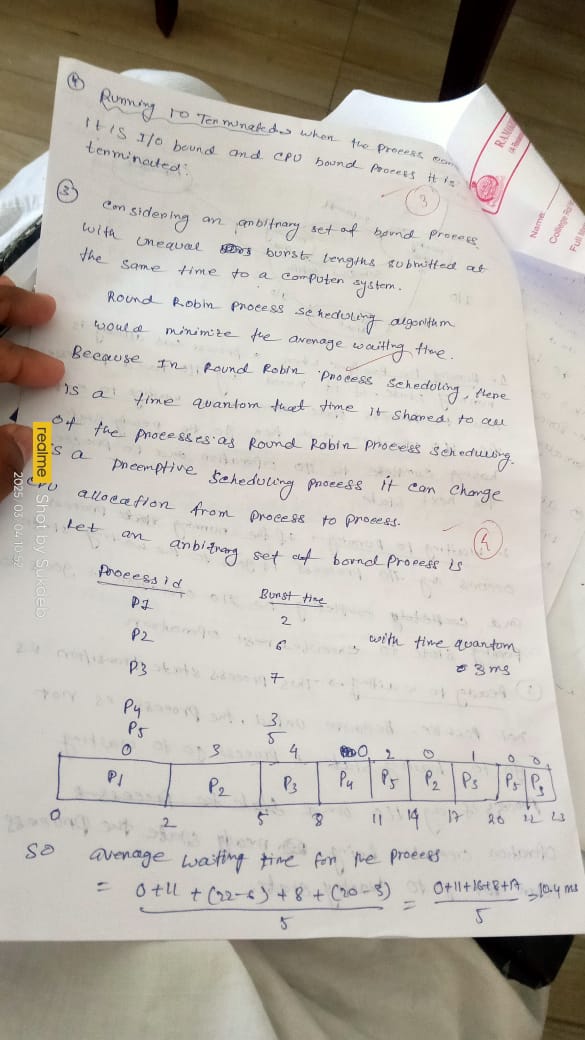 ④ Running to Terminated → when the process com
It is I/O bound and CPU bound process it is
terminated.
3
③
Considering an arbitrary set of bound process
with unequal burst lengths submitted at
the same time to a computer system.
Round Robin process scheduling algorithm
would minimize the average waiting time.
Because In Round Robin process scheduling, there
is a time quantum that time is shared to all
of the processes as Round Robin process scheduling
is a preemptive scheduling process it can change
CPU allocation from process to process.
4
Let an arbitrary set of bornd process is
Process id Burst time
P1 2
P2 6 , with time quantum
P3 7 3 ms
P4 3
P5 5
0 3 4 0 2 0 1 0 0
P1 P2 P3 P4 P5 P2 P3 P5 P3
0 2 5 8 11 14 17 20 22 23
So average waiting time for the process
= 0+11+(22-6)+8+(20-3) / 5 = 0+11+16+8+17 / 5 = 10.4 ms
Name:
College Ro
Full
realme Shot by Sukdeb
2025.03.04 10:52